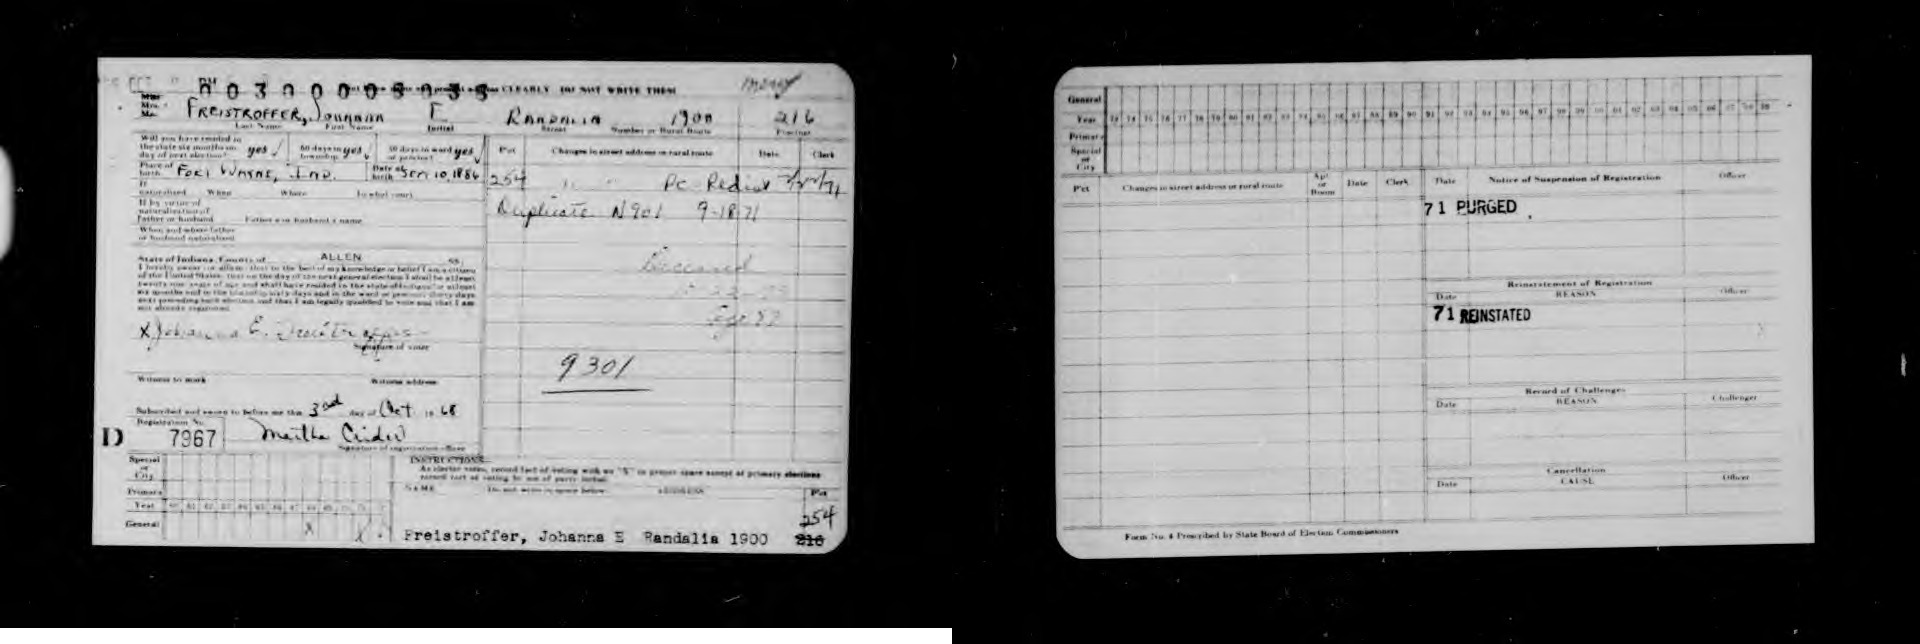 CLEARLY DO NOT WRITE THESE
Mrs.
FREISTROFFER, Johanna E RANDALIA 1900 216
Last Name First Name Initial Street Number or Rural Route Precinct
Will you have resided in
the state six months on yes 60 days in township yes 30 days in ward or precinct yes
day of next election?
Pct Changes in street address or rural route Date Clerk
Place of birth FORT WAYNE, IND. Date of birth Sept 10, 1886
254 " " Pc Redist
If
naturalized When Where In what court
Duplicate N901 9-18-71
If by virtue of
naturalization of
Father or husband Father's or husband's name
When and where father
or husband naturalized
State of Indiana, County of ALLEN SS:
I hereby swear (or affirm) that to the best of my knowledge or belief I am a citizen
of the United States, that on the day of the next general election I shall be at least
twenty one years of age and shall have resided in the state of Indiana for at least
six months and in the township sixty days and in the ward or precinct thirty days
next preceding such election and that I am legally qualified to vote and that I am
not already registered.
Deceased
Age 87
X Johanna E. Freistroffer
Signature of voter
9301
Witness to mark Witness address
Subscribed and sworn to before me this 3rd day of Oct 19 68
Registration No.
D 7967 Martha Crider
Signature of registration officer
INSTRUCTIONS
As elector votes, record fact of voting with an "X" in proper space except at primary elections
record fact of voting by use of party initial.
NAME Do not write in space below ADDRESS Pct
Special
or
City
Primary
Year
General X X
254
Freistroffer, Johanna E Randalia 1900 216
General
Year 73 74 75 76 77 78 79 80 81 82 83 84 85 86 87 88 89 90 91 92 93 94 95 96 97 98 99
Primary
Special
or
City
Pct Changes in street address or rural route Apt. or Room Date Clerk
Date Notice of Suspension of Registration Officer
71 PURGED
Reinstatement of Registration
Date REASON Officer
71 REINSTATED
Record of Challenges
Date REASON Challenger
Cancellation
Date CAUSE Officer
Form No. 4 Prescribed by State Board of Election Commissioners